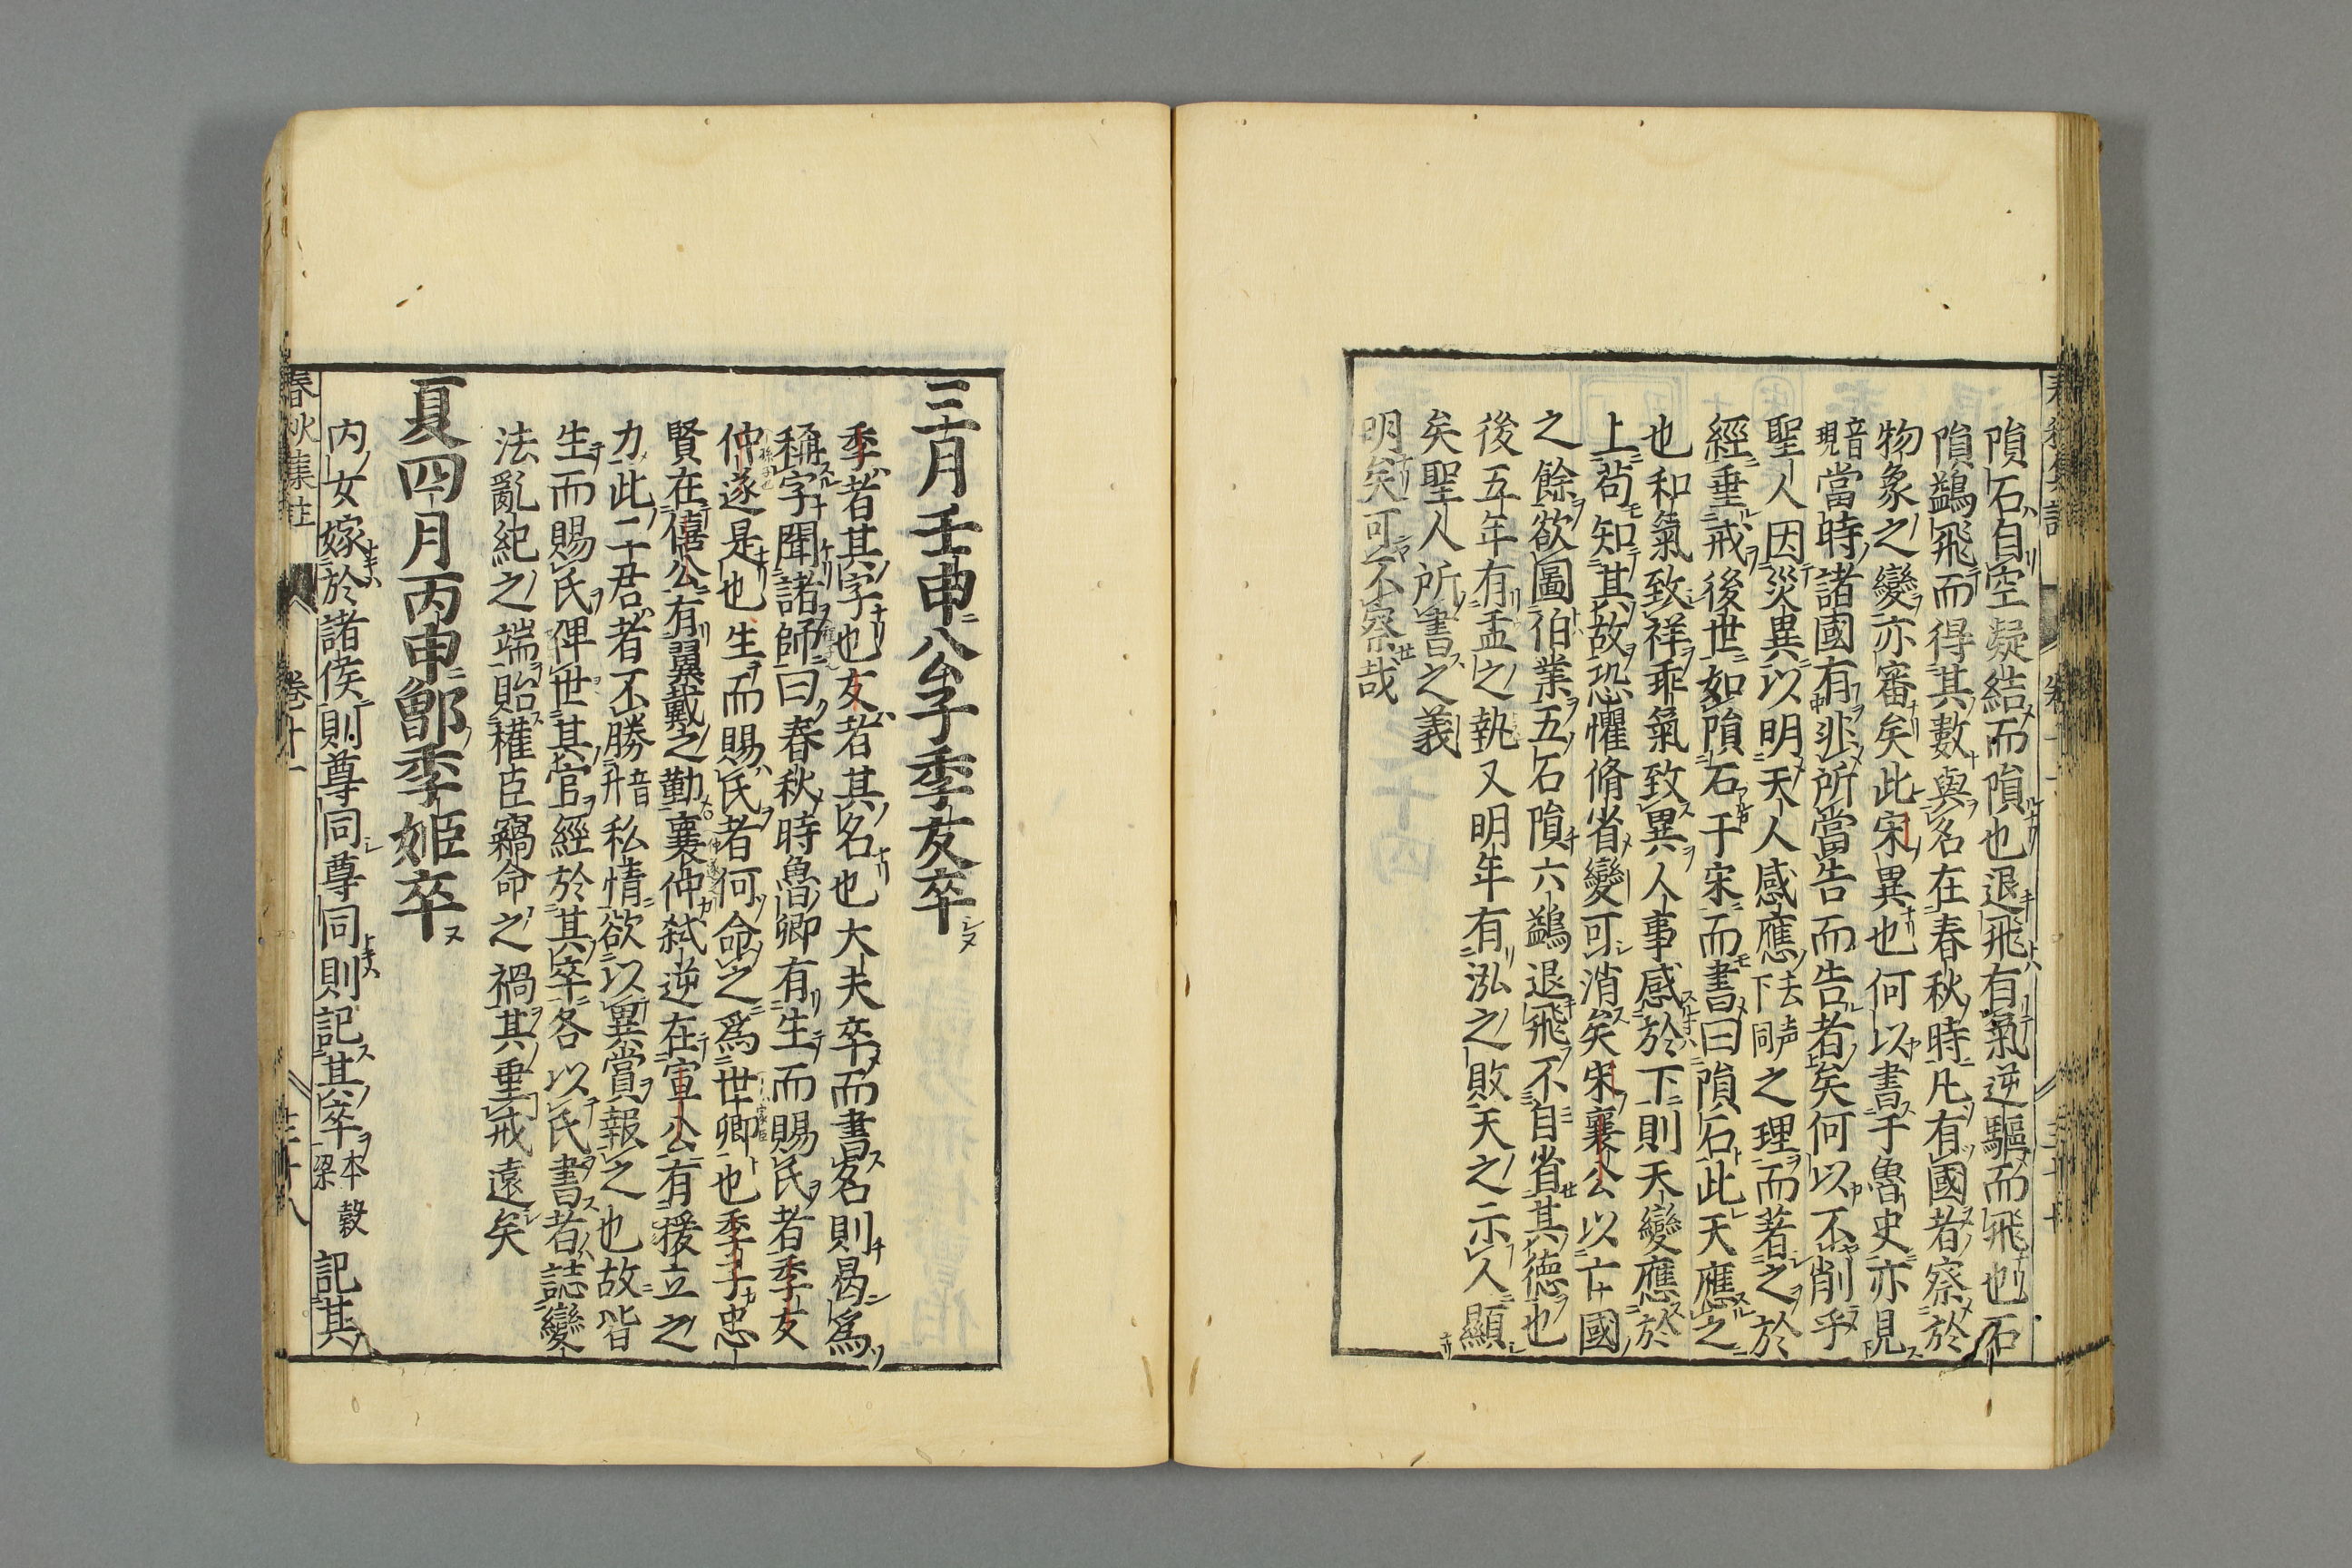 隕石自空凝結而隕也退飛有氣逆驅而飛也石
隕鷁飛而得其數與名在春秋時凡有國者察於
物象之變亦審矣此宋異也何以書于魯史亦見
音現當時諸國有非所當告而告者矣何以不削乎
聖人因災異以明天人感應去声下同之理而著之於
經垂戒後世如隕石于宋而書曰隕石此天應之
也和氣致祥乖氣致異人事感於下則天變應於
上苟知其故恐懼脩省變可消矣宋襄公以亡國
之餘欲圖伯業五石隕六鷁退飛不自省其德也
後五年有盂之執又明年有泓之敗天之示人顯
矣聖人所書之義
明矣可不察哉
三月壬申公子季友卒
季者其字也友者其名也大夫卒而書名則曷為
稱字聞諸師曰春秋時魯卿有生而賜氏者季友
仲遂是也生而賜氏者何命之為世卿也季子忠
賢在僖公有翼戴之勤襄仲弑逆在宣公有援立之
力此二君者不勝音升私情欲以異賞報之也故皆
生而賜氏俾世其官經於其卒各以氏書者誌變
法亂紀之端貽權臣竊命之禍其垂戒遠矣
夏四月丙申鄫季姬卒
內女嫁於諸侯則尊同尊同則記其卒本穀梁記其
春秋集註 卷十一 三十八